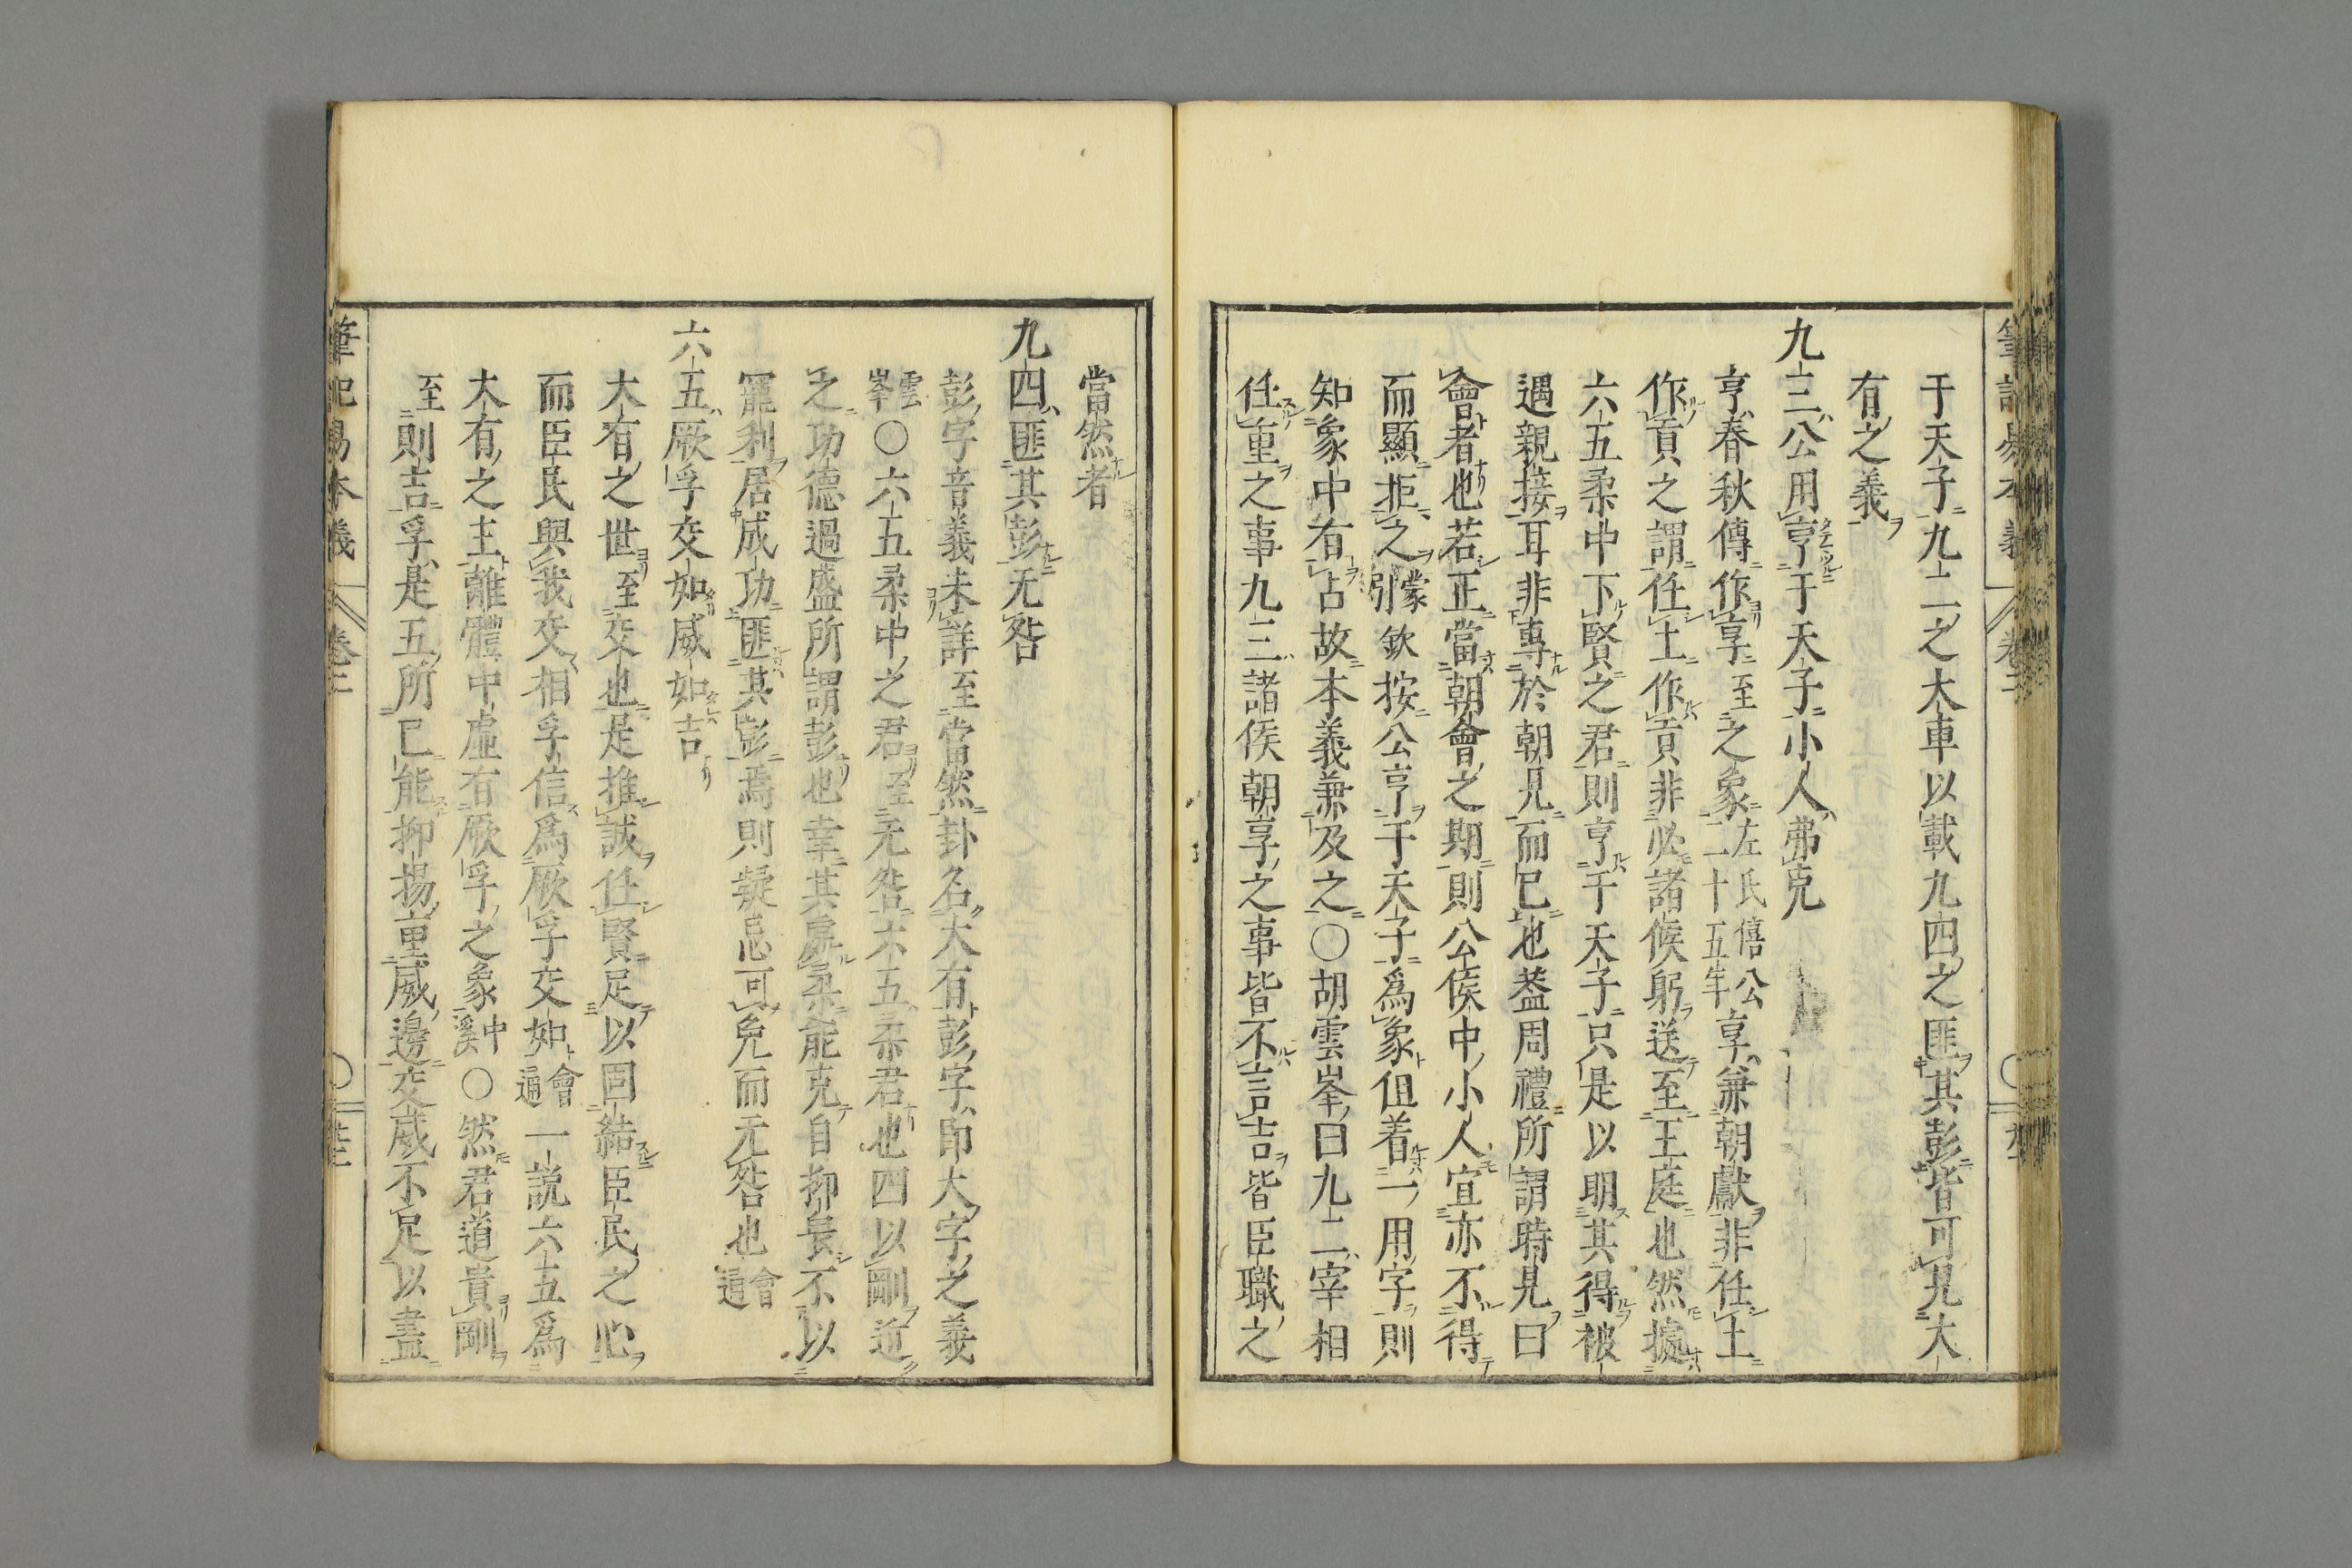 于天子九二之大車以載九四之匪其彭皆可見大
有之義
九三公用亨于天子小人弗克
亨春秋傳作享至之象左氏僖公二十五年享兼朝獻非任土
作貢之謂任土作貢非必諸侯躬送至王庭也然據
六五柔中下賢之君則亨于天子只是以明其得被
遇親接耳非專於朝見而已也蓋周禮所謂時見曰
會者也若正當朝會之期則公侯中小人宜亦不得
而顯拒之蒙引欽按公亨于天子爲象但着一用字則
知象中有占故本義兼及之○胡雲峯曰九二宰相
任重之事九三諸侯朝享之事皆不言吉皆臣職之
當然者
九四匪其彭无咎
彭字音義未詳至當然卦名大有彭字卽大字之義
雲峯○六五柔中之君至无咎六五柔君也四以剛近
之功德過盛所謂彭也幸其處柔能克自抑畏不以
寵利居成功匪其彭焉則疑忌可免而无咎也會通
六五厥孚交如威如吉
大有之世至交也是推誠任賢足以固結臣民之心
而臣民與我交相孚信爲厥孚交如會通一說六五爲
大有之主離體中虛有厥孚之象中溪○然君道貴剛
至則吉孚是五所已能抑揚重威邊交威不足以盡
筆記易本義 卷二